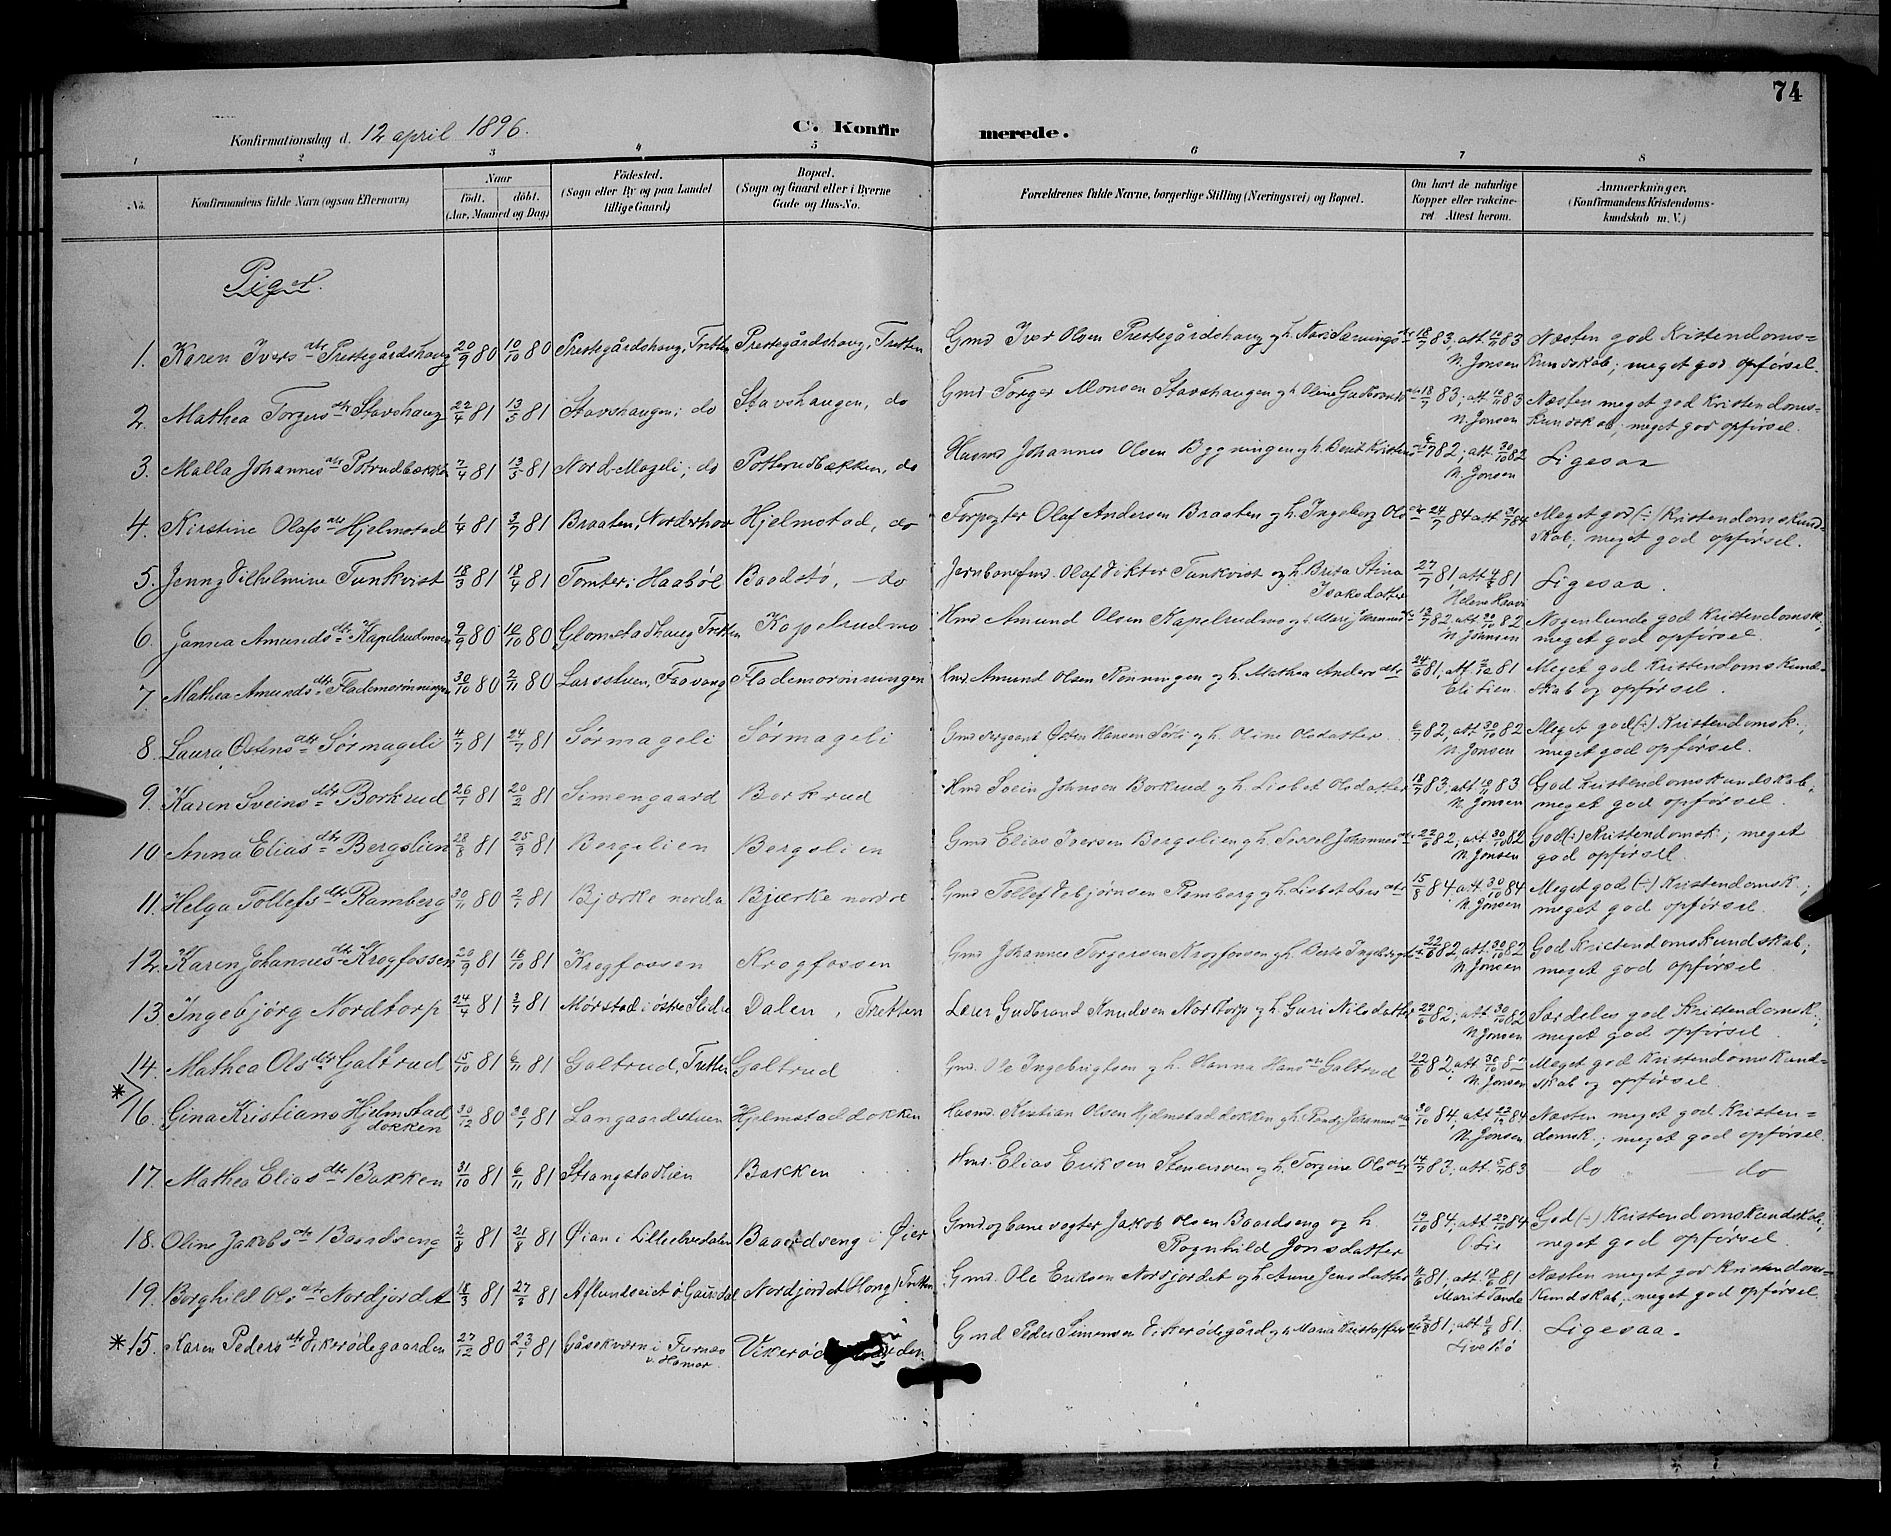 74
Konfirmationsdag d. 12 april 1896.
C. Konfirmerede.
1 2 3 4 5 6 7 8
No.
Konfirmandens fulde Navn (ogsaa Efternavn)
Naar
födt. döbt.
(Aar, Maaned og Dag)
Födested.
(Sogn eller By og paa Landet
tillige Gaard)
Bopæl.
(Sogn og Gaard eller i Byerne
Gade og Hus-No.
Forældrenes fulde Navne, borgerlige Stilling (Næringsvei) og Bopæl.
Om havt de naturlige
Kopper eller vakcine-
ret Attest herom.
Anmærkninger.
(Konfirmandens Kristendoms-
kundskab m. V.)
Piger.
1. Karen Ivers dtr Prestegårdshaug 20/9 80 10/10 80 Prestegårdshaug, Tretten Prestegårdshaug, Tretten Gmd Iver Olsen Prestegårdshaug g h. 18/7 83, att 83 Næsten god Kristendoms=
N. Jonsen kundskab; meget god opførsel.
2. Mathea Torgers dtr Stavshaug 22/4 81 13/5 81 Stavshaugen; do Stavshaugen, do Gmd Torger Monsen Stavshaugen g h. Oline 18/7 83; att 83 Næsten meget god Kristendoms=
N. Jonsen kundskab; meget god opførsel.
3. Malla Johannes dtr 7/4 81 13/5 81 Nord-Mageli; do Potterudbækken, do Husmd Johannes Olsen Bygningen g h. Berit 82; att 30/10 82 Ligesaa
N. Jonsen
4. Kirstine Olafs dtr Hjelmstad 1/4 81 3/7 81 Braaten, Norderhov Hjelmstad, do Forpagter Olaf Andersen Braaten g h. Ingeborg Ols dtr 24/7 84 att 84 Meget god (÷) Kristendomskund=
skab; meget god opførsel.
5. Jenny Vilhelmine Tunkvist 18/3 81 18/4 81 Tomter i Haabøl Baadstø, — do Jernbanefmd. Olaf Viktor Tunkvist og h. Brita Stina 27/7 81, att 81 Ligesaa.
Isaksdatter
6. Janna Amunds dtr Kapelrudmoen 9/9 80 10/10 80 Glomstadhaug Tretten Kapelrudmo Hmd Amund Olsen Kapelrudmo g h. Mari 82, att 30/10 82 Nogenlunde god Kristendomsk.;
N. Jonsen meget god opførsel.
7. Mathea Amunds dtr Flademorønningen 30/10 80 2/11 80 Larsstuen, Faavang Flademorønningen Hmd Amund Olsen Rønningen og h. Mathea Anders dtr 24/6 81, att 81 Meget god Kristendomskund=
Eli Lien. skab og opførsel.
8. Laura Østens dtr Sørmageli 4/7 81 24/7 81 Sørmageli Sørmageli Gmd Sergeant Østen Hansen Sørli g h. Oline Olsdatter. 82, att 30/10 82 Meget god (÷) Kristendomsk.;
N. Jonsen meget god opførsel.
9. Karen Sveins dtr Borkrud 26/1 81 20/2 81 Simengaard Borkrud Hmd Svein Johnsen Borkrud g h. Lisbet Olsdatter 18/7 83, att 83 God Kristendomskundskab,
N. Jonsen meget god opførsel.
10 Anna Elias dtr Bergslien 28/8 81 25/9 81 Bergslien Bergslien Gmd Elias Iversen Bergslien g h. Sissel Johannes dtr 22/6 82, att 30/10 82 God (÷) Kristendomsk.; meget
N. Jonsen god opførsel.
11. Helga Tollefs dtr Ramberg 30/11 80 2/1 81 Bjærke nordre Bjærke nordre Gmd Tollef Ramberg g h. Lisbet Lars dtr 15/8 84, att 30/10 84 Meget god (÷) Kristendomsk.;
N. Jonsen meget god opførsel.
12. Karen Johannes dtr Krogfossen 20/9 81 16/10 81 Krogfossen Krogfossen Gmd Johannes Torgersen Krogfossen g h. Berte 22/6 82, att 30/10 82 God Kristendomskundskab;
N. Jonsen meget god opførsel.
13. Ingebjørg Nordtorp 24/4 81 3/7 81 Mørstad i østre Slidre Dalen, Tretten Lærer Gudbrand Knudsen Nordtorp g h. Guri Nilsdatter 82; att 30/10 82 Særdeles god Kristendomsk.;
N. Jonsen meget god opførsel.
14. Mathea Ols dtr Galtrud 15/10 81 6/11 81 Galtrud, Tretten Galtrud Gmd. Ole Ingebrigtsen g h. Hanna Hans dtr Galtrud 22/6 82, att 30/10 82 Meget god Kristendomskund=
N. Jonsen skab og opførsel.
* 16. Gina Kristians Hjelmstad 30/12 80 30/1 81 Langaardstuen Hjelmstaddokken Husmd. Kristian Olsen Hjelmstaddokken g h. Johannes dtr 30/10 84, att 84 Næsten meget god Kristen=
dokken N. Jonsen domsk.; meget god opførsel.
17. Mathea Elias dtr Bakken 31/10 81 6/11 81 Strangstadlien Bakken Hmd. Elias Eriksen g h. Torgine Ols dtr 83; att. 83 do do
18. Oline Jakobs dtr Baardseng 2/8 81 21/8 81 Øian i Lilleelvedalen Baardseng i Øier Gmd. og banevogter Jakob Olsen Baardseng og h. 84; att 84 God (÷) Kristendomskundskab;
Ragnhild Jonsdatter O. Lie meget god opførsel.
19. Borghild Ols dtr Nordjordet 18/3 81 27/3 81 Aflundseiet ø Gausdal Nordjordet Tretten Gmd. Ole Eriksen Nordjordet g h. Anne Jensdatter 81, att. 81 Næsten meget god Kristendoms=
Marit Tande kundskab; meget god opførsel.
* 15. Karen Peders dtr Vikerødegaarden 27/12 80 23/1 81 Gåsekværn i Furnæs Gmd Peder Simensen Vikerødegård g h. Maria 81, att 81. Ligesaa.
v. Hamar.